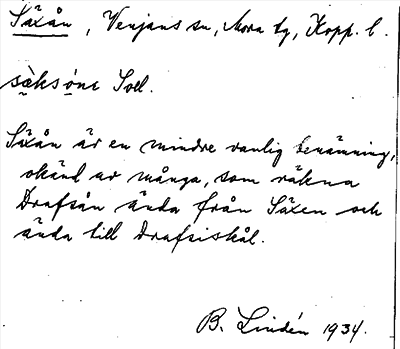 Säxån, Venjans sn, Mora tg, Kopp. l.
sὰksóne Soll.
Säxån är en mindre vanlig benämning,
okänd av många, som räkna
Drafsån ända från Säxen och
ända till Drafsiskål.
B. Lindén 1934.